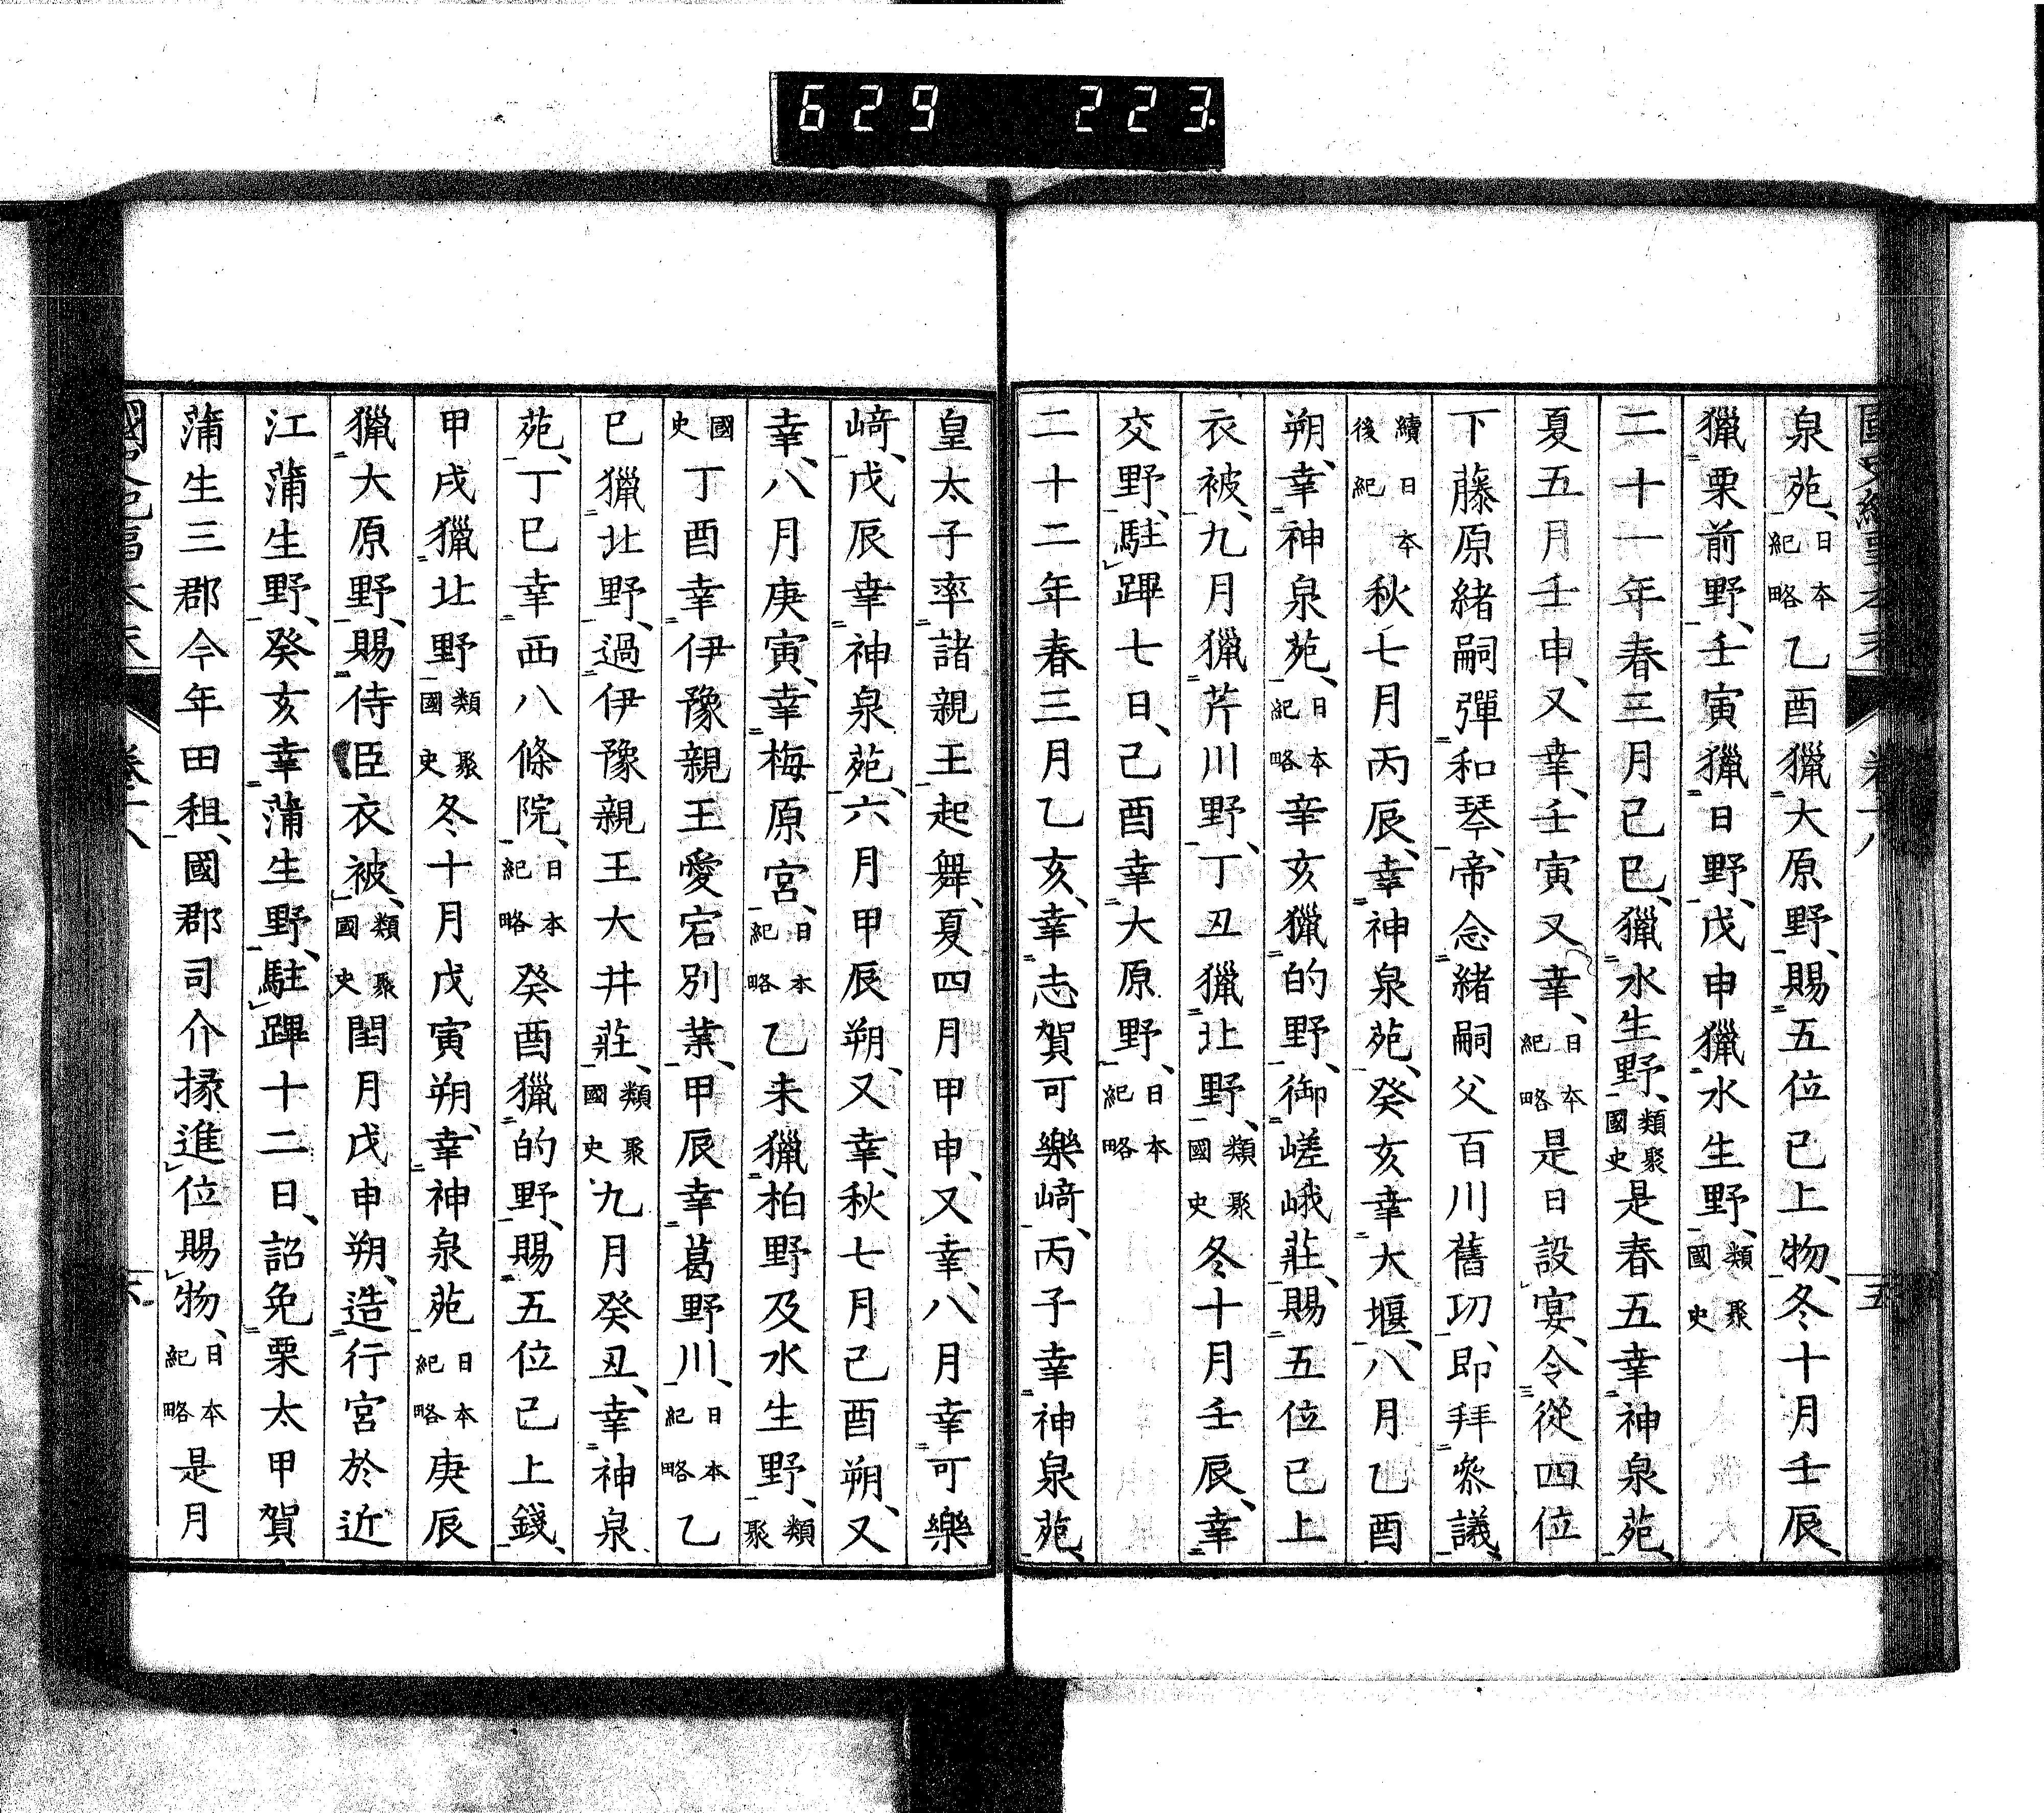 629 223
泉苑、日本紀略乙酉獵大原野、賜五位已上物、冬十月壬辰、
獵栗前野、壬寅獵日野、戊申獵水生野、類聚國史
二十一年春三月己巳、獵水生野、類聚國史是春五幸神泉苑、
夏五月壬申、又幸、壬寅又幸、日本紀略是日設宴、令從四位
下藤原緒嗣彈和琴、帝念緒嗣父百川舊功、即拜參議、
續日本後紀秋七月丙辰、幸神泉苑、癸亥幸大堰、八月乙酉
朔、幸神泉苑、日本紀略辛亥獵的野、御嵯峨莊、賜五位已上
衣被、九月獵芹川野、丁丑獵北野、類聚國史冬十月壬辰、幸
交野、駐蹕七日、己酉幸大原野、日本紀略
二十二年春三月乙亥、幸志賀可樂﨑、丙子幸神泉苑、
皇太子率諸親王起舞、夏四月甲申、又幸、八月幸可樂
﨑、戊辰幸神泉苑、六月甲辰朔、又幸、秋七月己酉朔、又
幸、八月庚寅、幸梅原宮、日本紀略乙未獵柏野及水生野、類聚
國史丁酉幸伊豫親王愛宕別業、甲辰幸葛野川、日本紀略乙
巳獵北野、過伊豫親王大井莊、類聚國史九月癸丑、幸神泉
苑、丁巳幸西八條院、日本紀略癸酉獵的野、賜五位已上錢、
甲戌獵北野類聚國史冬十月戊寅朔、幸神泉苑日本紀略庚辰
獵大原野、賜侍臣衣被、類聚國史閏月戊申朔、造行宮於近
江蒲生野、癸亥幸蒲生野、駐蹕十二日、詔免栗太甲賀
蒲生三郡今年田租、國郡司介掾進位賜物、日本紀略是月